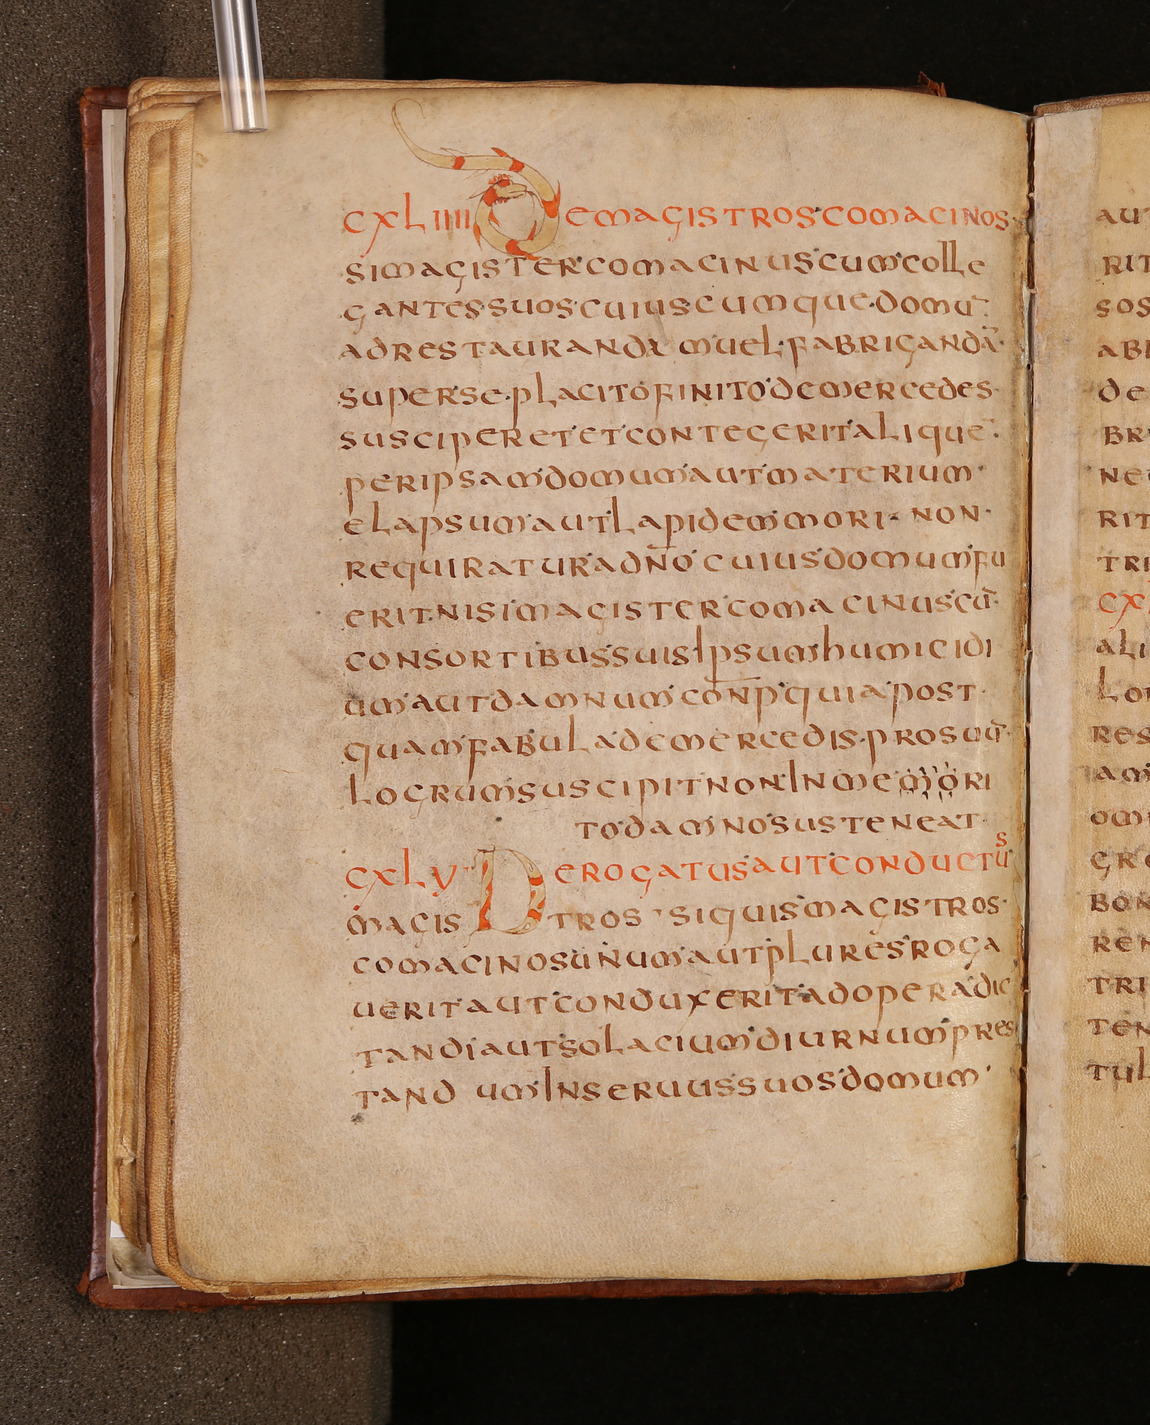 CXLIIII DEMAGISTROS·COMACINOS·
SIMAGISTER·COMACINUS·CUM·COLLE
GANTES·SUOS·CUIUSCUMQUE·DOMŪ·
ADRESTAURANDAM·UEL·FABRIGANDĀ·
SUPERSE·PLACITO·FINITO·DEMERCEDES·
SUSCIPERET·ET·CONTEGERIT·ALIQUE·
PERIPSAM·DOMUM·AUT·MATERIUM·
ELAPSUM·AUT·LAPIDEM·MORI·NON·
REQUIRATUR·AD·DN̄O·CUIUS·DOMUM·FU
ERIT·NISI·MAGISTER·COMACINUS·CŪ·
CONSORTIBUS·SUIS·IPSUM·HUMICIDI
UM·AUT·DAMNUM·CON̄P·QUIA·POST·
QUAM·FABULA·DEMERCEDIS·PROSUŪ·
LOGRUM·SUSCIPIT·NON·INMEMORI
TO·DAMNO·SUSTENEAT·
CXLV DEROGATUS·AUT·CONDUCTUS
MAGISTROS·SIQUIS·MAGISTROS·
COMACINOS·UNUM·AUT·PLURES·ROGA
UERIT·AUT·CONDUXERIT·ADOPERA·DIC
TANDI·AUT·SOLACIUM·DIURNUM·PRES
TANDUM·INSERUUS·SUOS·DOMUM·
AUT
RIT
SOS
ABI
DE
BR
NE
RIT
TRI
CX
ALI
LO
RES
AM
OM
GR
BON
REN
TRI
TEN
TUL